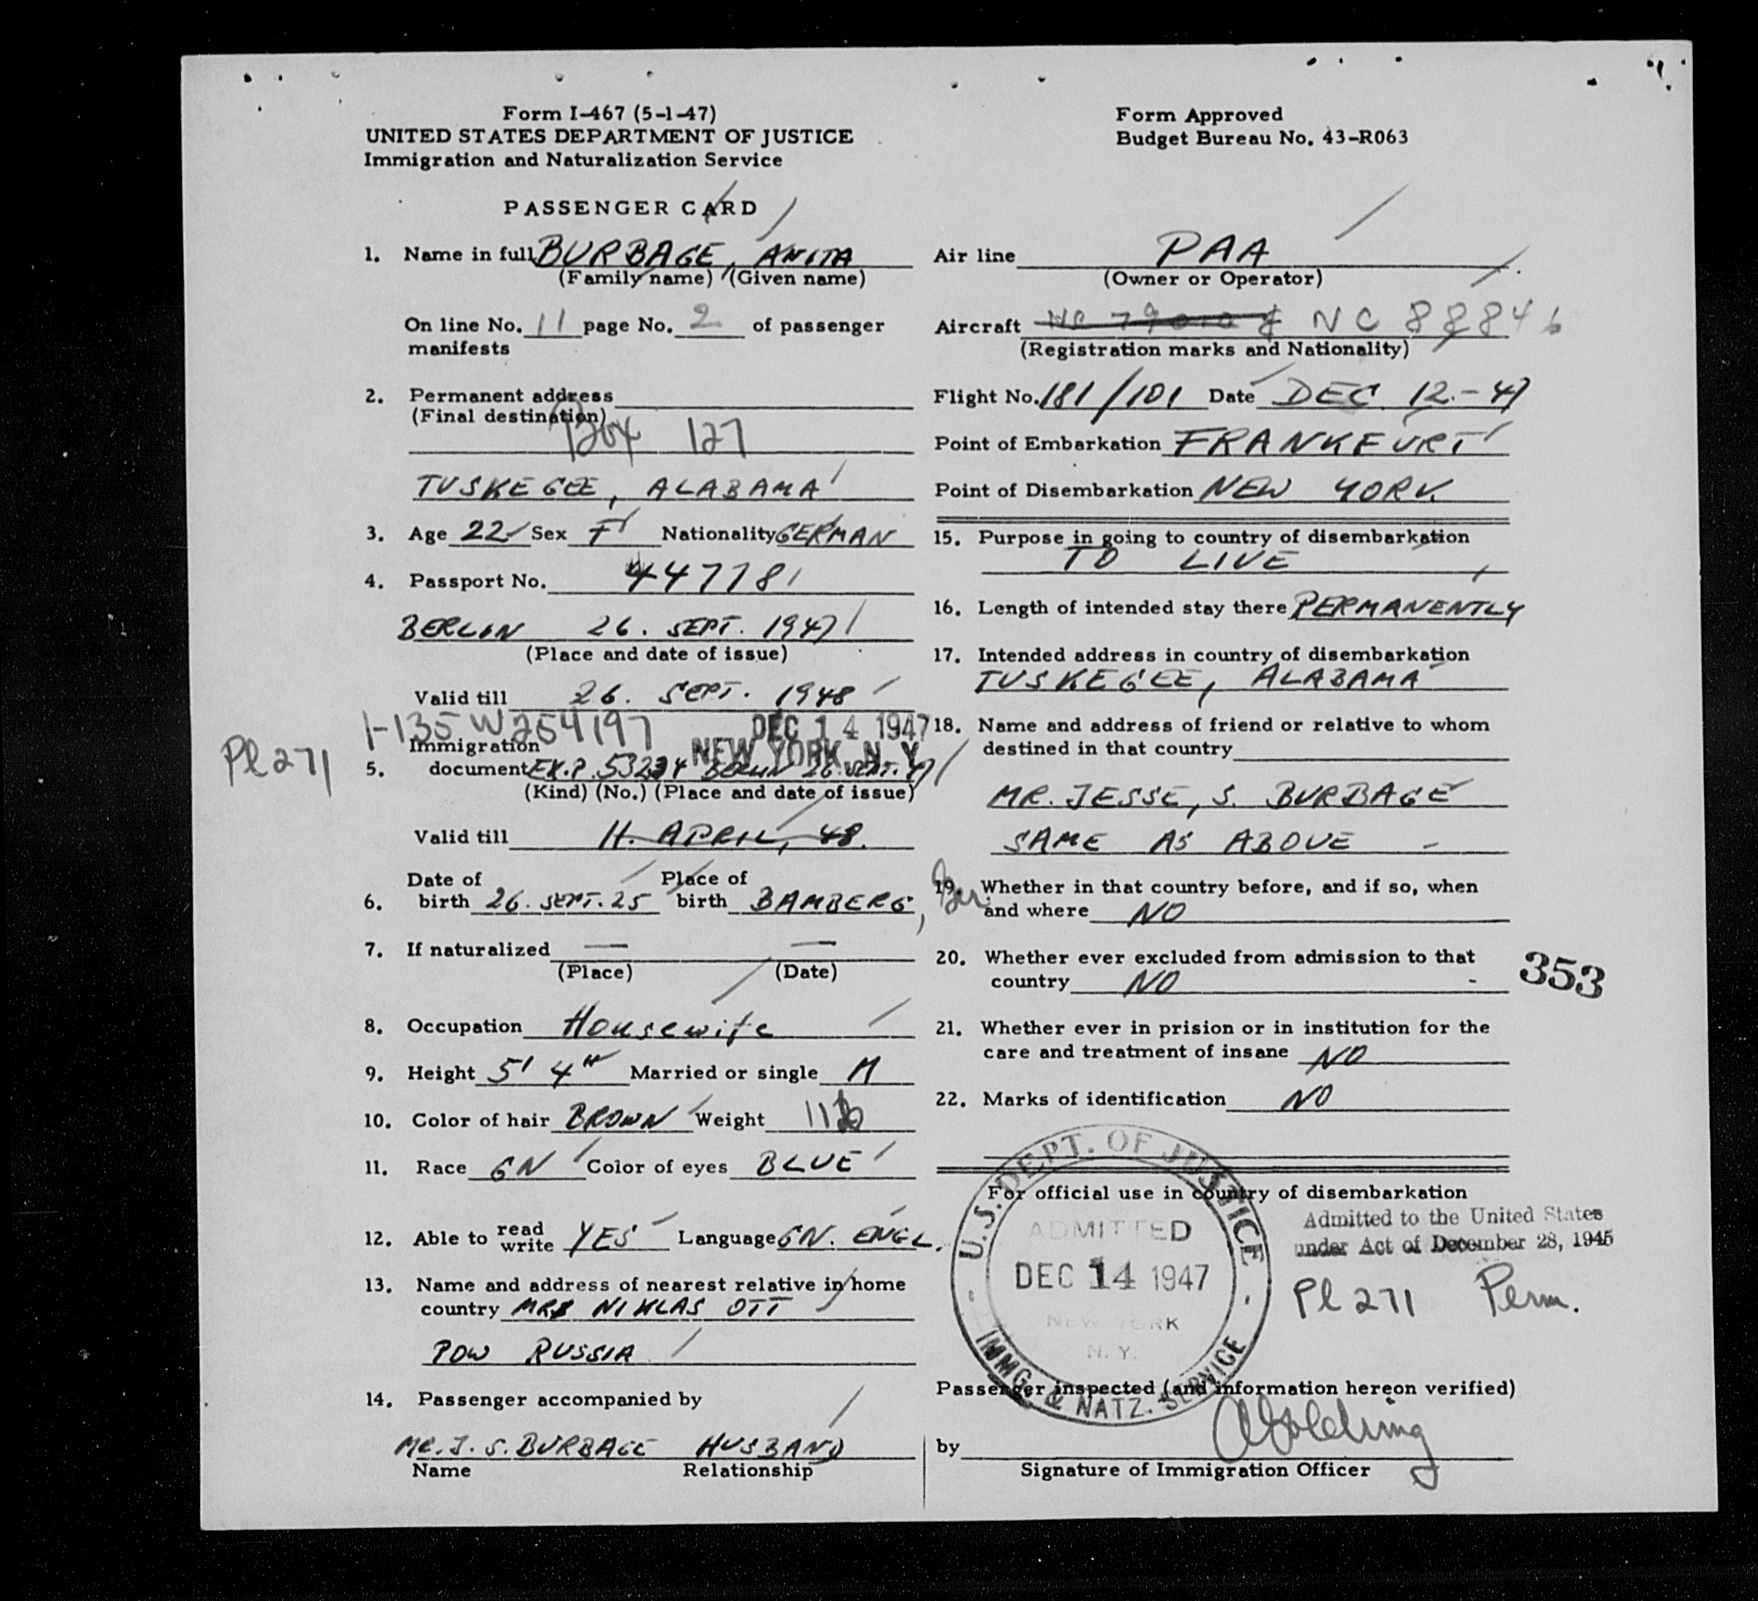 Form I-467 (5-1-47)
UNITED STATES DEPARTMENT OF JUSTICE
Immigration and Naturalization Service
PASSENGER CARD
1. Name in full BURBAGE, ANITA
(Family name) (Given name)
On line No. 11 page No. 2 of passenger
manifests
2. Permanent address
(Final destination)
Box 127
TUSKEGEE, ALABAMA
3. Age 22 Sex F Nationality GERMAN
4. Passport No. 447781
BERLIN 26. SEPT. 1947
(Place and date of issue)
Valid till 26. SEPT. 1948
I-135 W264197 DEC 14 1947
NEW YORK, N. Y.
Pl 271
Immigration
5. document EX.P. BERLIN 26. SEPT. 47
(Kind) (No.) (Place and date of issue)
Valid till APRIL, 48.
Date of Place of
6. birth 26. SEPT. 25 birth BAMBERG, Ger
7. If naturalized — —
(Place) (Date)
8. Occupation Housewife
9. Height 5' 4" Married or single M
10. Color of hair BROWN Weight
11. Race GN Color of eyes BLUE
12. Able to read write YES Language GN. ENGL.
13. Name and address of nearest relative in home
country NIKLAS OTT
POW RUSSIA
14. Passenger accompanied by
MR. J. S. BURBAGE HUSBAND
Name Relationship
Form Approved
Budget Bureau No. 43-R063
Air line PAA
(Owner or Operator)
Aircraft NC 88846
(Registration marks and Nationality)
Flight No. 181/101 Date DEC 12.-47
Point of Embarkation FRANKFURT
Point of Disembarkation NEW YORK
15. Purpose in going to country of disembarkation
TO LIVE
16. Length of intended stay there PERMANENTLY
17. Intended address in country of disembarkation
TUSKEGEE, ALABAMA
18. Name and address of friend or relative to whom
destined in that country
MR. JESSE, S. BURBAGE
SAME AS ABOVE -
19. Whether in that country before, and if so, when
and where NO
20. Whether ever excluded from admission to that
country NO -
353
21. Whether ever in prision or in institution for the
care and treatment of insane NO
22. Marks of identification NO
For official use in country of disembarkation
U.S. DEPT. OF JUSTICE
ADMITTED
DEC 14 1947
NEW YORK
N. Y.
IMMG. & NATZ. SERVICE
Admitted to the United States
under Act of December 28, 1945
Pl 271 Perm.
Passenger inspected (and information hereon verified)
by
Signature of Immigration Officer